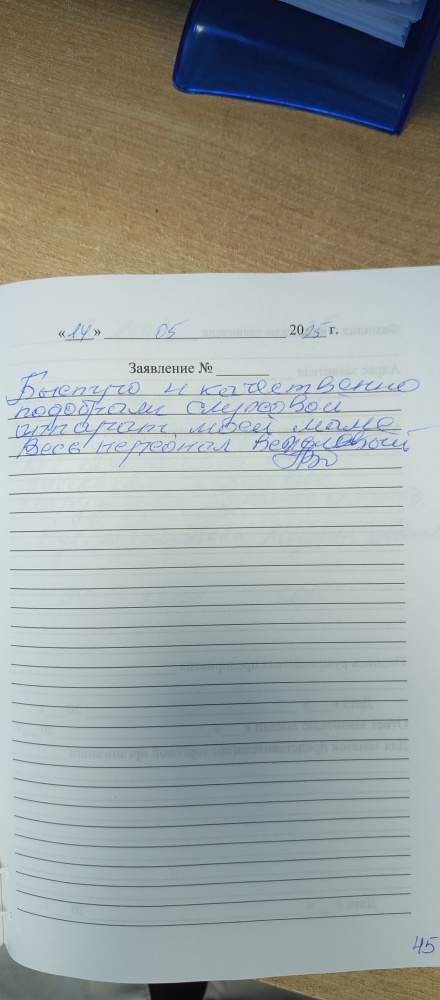 «14» 05 2025 г.
Заявление №
Быстро и качественно
подобрали слуховой
аппарат моей маме
Весь персонал вежливый
45